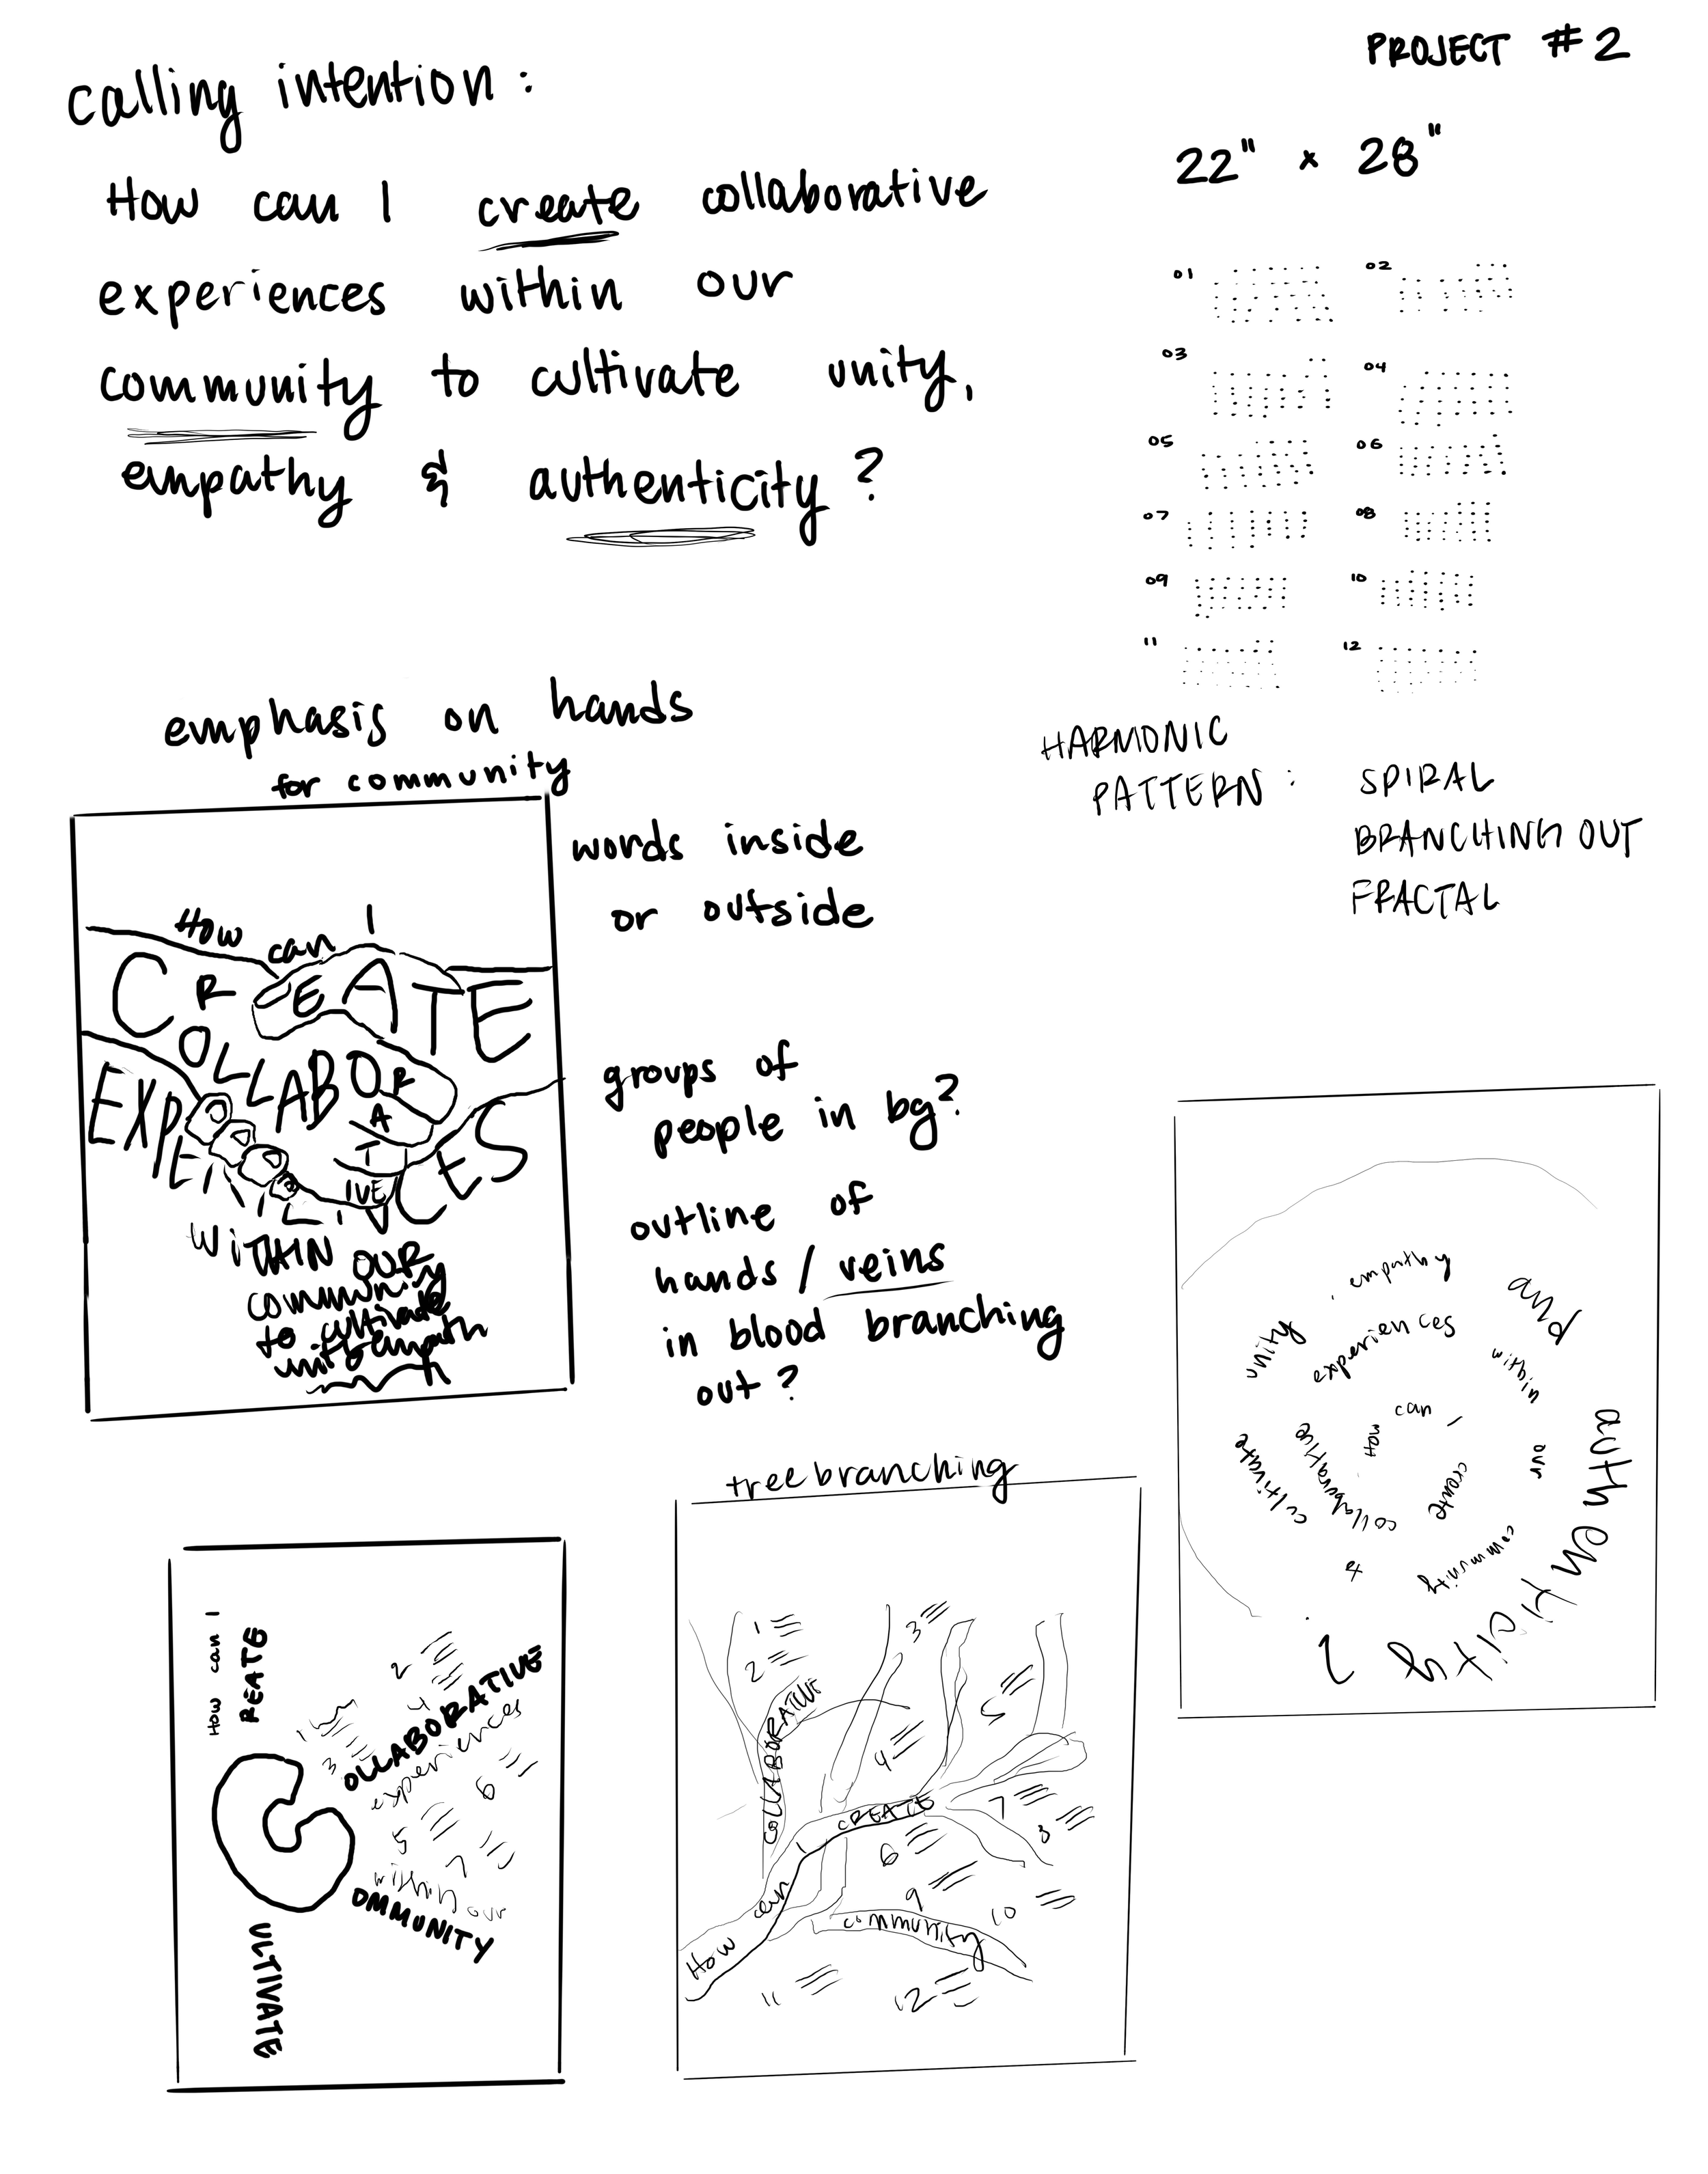 PROJECT #2
calling intention:
22" x 28"
How can I create collaborative
experiences within our
community to cultivate unity,
empathy & authenticity?
01 02
03 04
05 06
07 08
09 10
11 12
HARMONIC
PATTERN: SPIRAL
BRANCHING OUT
FRACTAL
emphasis on hands
for community
words inside
or outside
groups of
people in bg?
outline of
hands / veins
in blood branching
out?
How can I
CREATE
COLLABORATIVE
WITHIN OUR
community
to cultivate
How can I
create
collaborative
experiences
within
our
community
&
cultivate
unity
empathy
and
authenticity?
tree branching
How can I CREATE
COLLABORATIVE
community
1
2
3
4
5
6
7
8
9
10
11
12
How can I
REATE
C
OLLABORATIVE
experiences
within our
OMMUNITY
ULTIVATE
1
2
3
4
5
6
7